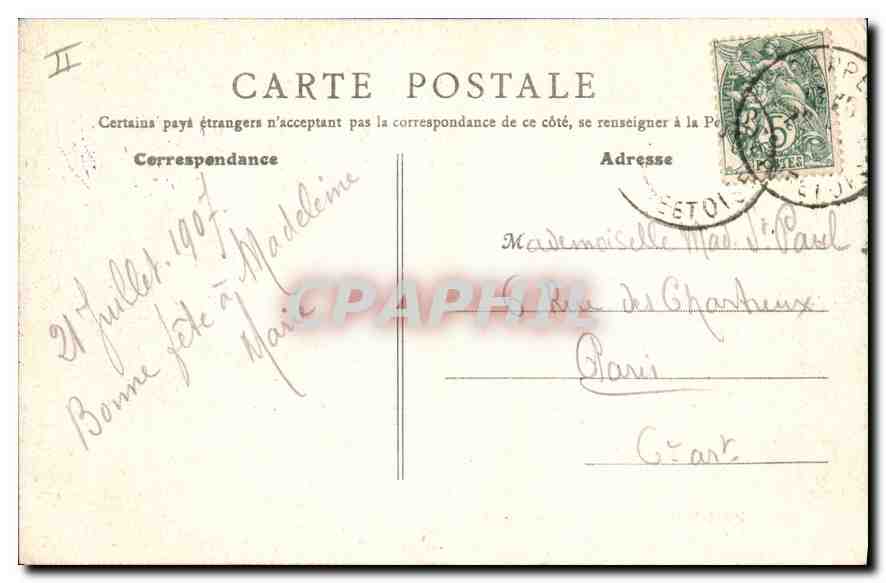 II
CARTE POSTALE
Certains pays étrangers n'acceptant pas la correspondance de ce côté, se renseigner à la
Correspondance
Adresse
21 Juillet. 1907.
Bonne fête à Madeleine
Marie
Mademoiselle Mad. St. Paul
6 Rue des Chartreux
Paris
CPAPHIL
5